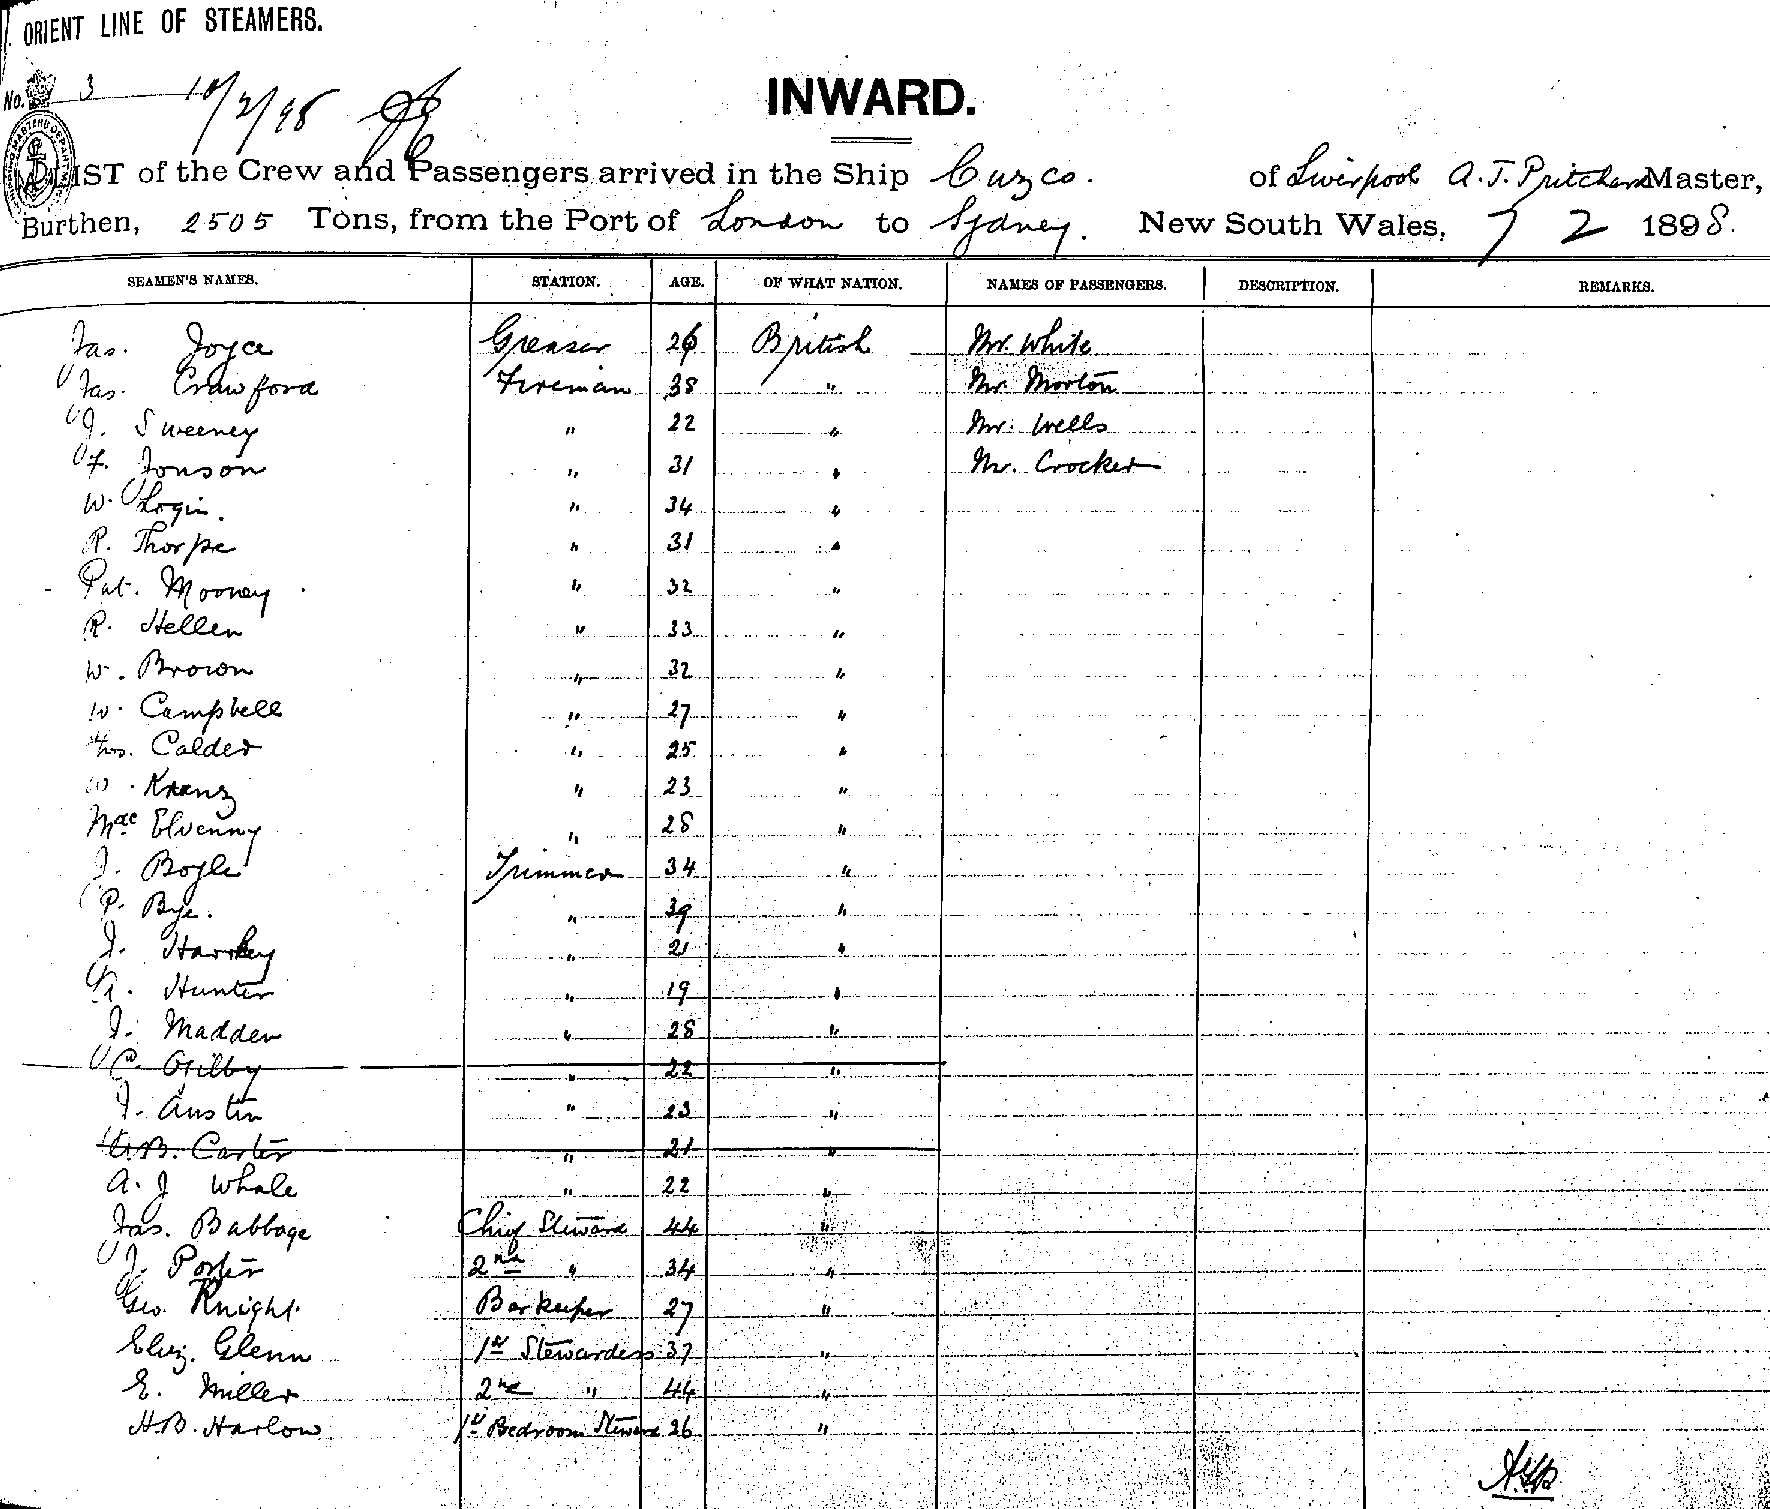 ORIENT LINE OF STEAMERS.
No. 3 10/2/98
INWARD.
LIST of the Crew and Passengers arrived in the Ship Cuzco. of Liverpool A. J. Pritchard Master,
Burthen, 2505 Tons, from the Port of London to Sydney. New South Wales, 7 2 1898.
SEAMEN'S NAMES. STATION. AGE. OF WHAT NATION. NAMES OF PASSENGERS. DESCRIPTION. REMARKS.
Jas. Joyce Greaser 26 British Mr. White
Jas. Crawford Fireman 38 " Mr. Morton
J. Sweeney " 22 " Mr. Wells
F. Jonson " 31 " Mr. Crocker
W. Login. " 34 "
R. Thorpe " 31 "
Pat. Mooney " 32 "
R. Hellen " 33 "
W. Brown " 32 "
W. Campbell " 27 "
Thos. Calder " 25 "
W. Kranz " 23 "
Mac Elvenny " 28 "
J. Bogle Trimmer 34 "
P. Bye. " 39 "
J. " 21 "
A. Hunter " 19 "
J. Madden " 28 "
C. Gilby " 22 "
J. Austin " 23 "
W.B. Carter " 21 "
A. J Whale " 22 "
Jas. Babbage Chief Steward 44 "
J. Porter 2nd " 34 "
Geo. Knight. Barkeeper 27 "
Eliz. Glenn 1st Stewardess 37 "
E. Miller 2nd " 44 "
H.B. Harlow. 1st Bedroom Steward 26 "